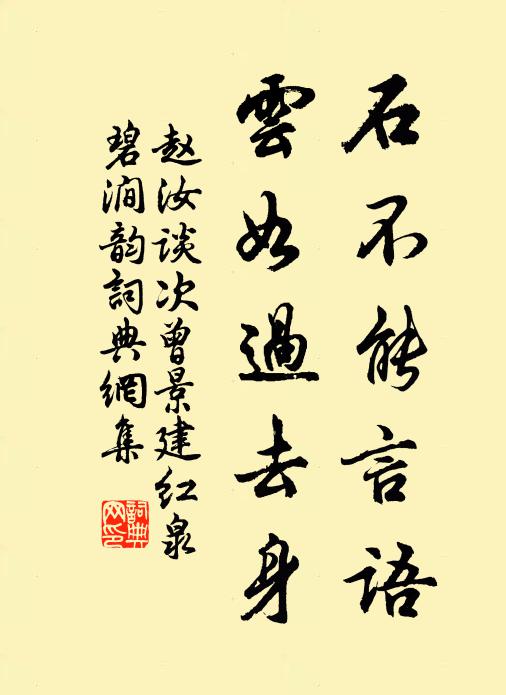 石不能言语
雲如過去身
赵汝谈次曾景建红泉
碧涧韵詞典網集
詞典
网印